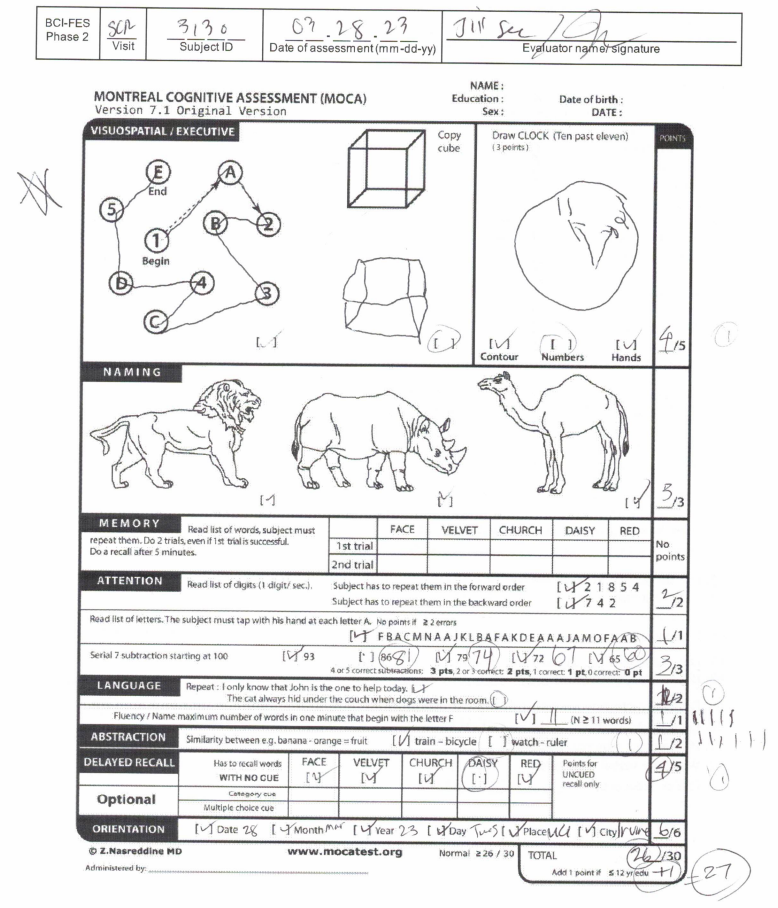 BCI-FES Phase 2
SCR
Visit
3130
Subject ID
03.28.23
Date of assessment (mm-dd-yy)
Jill See
Evaluator name/signature
NAME :
MONTREAL COGNITIVE ASSESSMENT (MOCA)
Education :
Date of birth :
Version 7.1 Original Version
Sex :
DATE :
VISUOSPATIAL / EXECUTIVE
Copy cube
Draw CLOCK (Ten past eleven)
(3 points)
POINTS
E
End
A
5
B
2
1
Begin
D
4
3
C
[✓]
[ ]
[✓]
Contour
[ ]
Numbers
[✓]
Hands
4/5
1
NAMING
[✓]
[✓]
[✓]
3/3
MEMORY
Read list of words, subject must
repeat them. Do 2 trials, even if 1st trial is successful.
Do a recall after 5 minutes.
FACE VELVET CHURCH DAISY RED
1st trial
2nd trial
No points
ATTENTION
Read list of digits (1 digit/ sec.).
Subject has to repeat them in the forward order [✓] 2 1 8 5 4
Subject has to repeat them in the backward order [✓] 7 4 2
2/2
Read list of letters. The subject must tap with his hand at each letter A. No points if ≥ 2 errors
[✓] F B A C M N A A J K L B A F A K D E A A A J A M O F A A B
1/1
Serial 7 subtraction starting at 100 [✓] 93 [ ] 86 81 [✓] 79 74 [✓] 72 67 [✓] 65 60
4 or 5 correct subtractions: 3 pts, 2 or 3 correct: 2 pts, 1 correct: 1 pt, 0 correct: 0 pt
3/3
LANGUAGE
Repeat : I only know that John is the one to help today. [✓]
The cat always hid under the couch when dogs were in the room. [ ]
/2
1
Fluency / Name maximum number of words in one minute that begin with the letter F [✓] 11 (N ≥ 11 words)
1/1
ABSTRACTION
Similarity between e.g. banana - orange = fruit [✓] train – bicycle [ ] watch - ruler
1
1/2
DELAYED RECALL
Has to recall words
WITH NO CUE
FACE [✓]
VELVET [✓]
CHURCH [✓]
DAISY [ ]
RED [✓]
Points for UNCUED recall only
4/5
1
Optional
Category cue
Multiple choice cue
ORIENTATION
[✓] Date 28 [✓] Month Mar [✓] Year 23 [✓] Day Tues [✓] Place UCI [✓] City Irvine
6/6
© Z.Nasreddine MD
www.mocatest.org
Normal ≥ 26 / 30
TOTAL
26/30
Administered by:
Add 1 point if ≤ 12 yr edu
+1 = 27